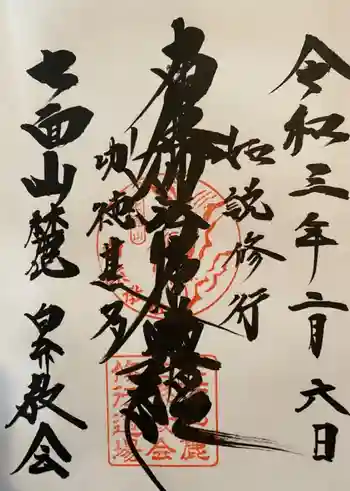 令和三年二月六日
如説修行
南無妙法蓮華経
功徳甚多
七面山麓 教会
修行道場